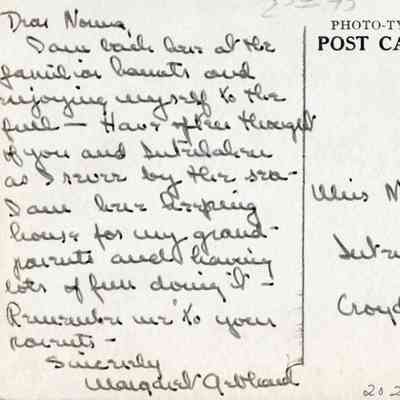 Dear Norma,
I am back here at the
familiar haunts and
enjoying myself to the
full — Have often thought
of you and
as I sever by the sea -
I am here keeping
house for my grand-
parents and having
lots of fun doing it -
Remember me to your
parents -
Sincerely
Margaret
PHOTO-TY
POST CA
Miss N
Croyd
20 2